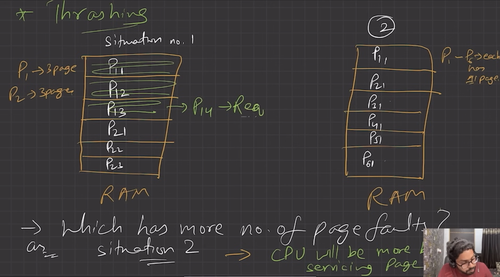 * Thrashing
Situation no. 1
P1 → 3 page
P2 → 3 pages
P11
P12
P13 → P14 → Req
P21
P22
P23
RAM
2
P11
P21
P31
P41
P51
P61
P1 - P6 each
has
page
RAM
→ Which has more no. of page faults?
situation 2 → CPU will be more
servicing Page